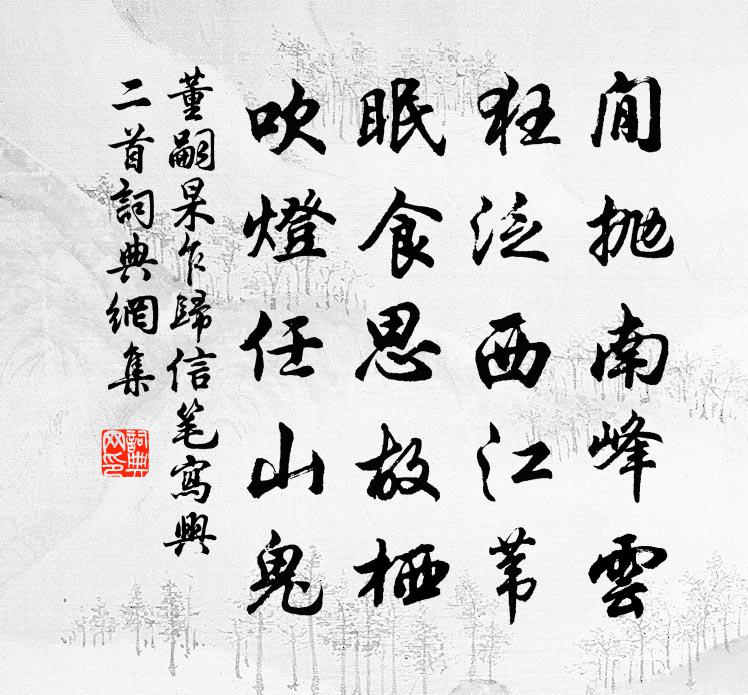 閒抛南峰雲
狂泛西江苇
眠食思故栖
吹燈任山鬼
董嗣杲乍歸信笔寫興
二首詞典網集
詞典网印